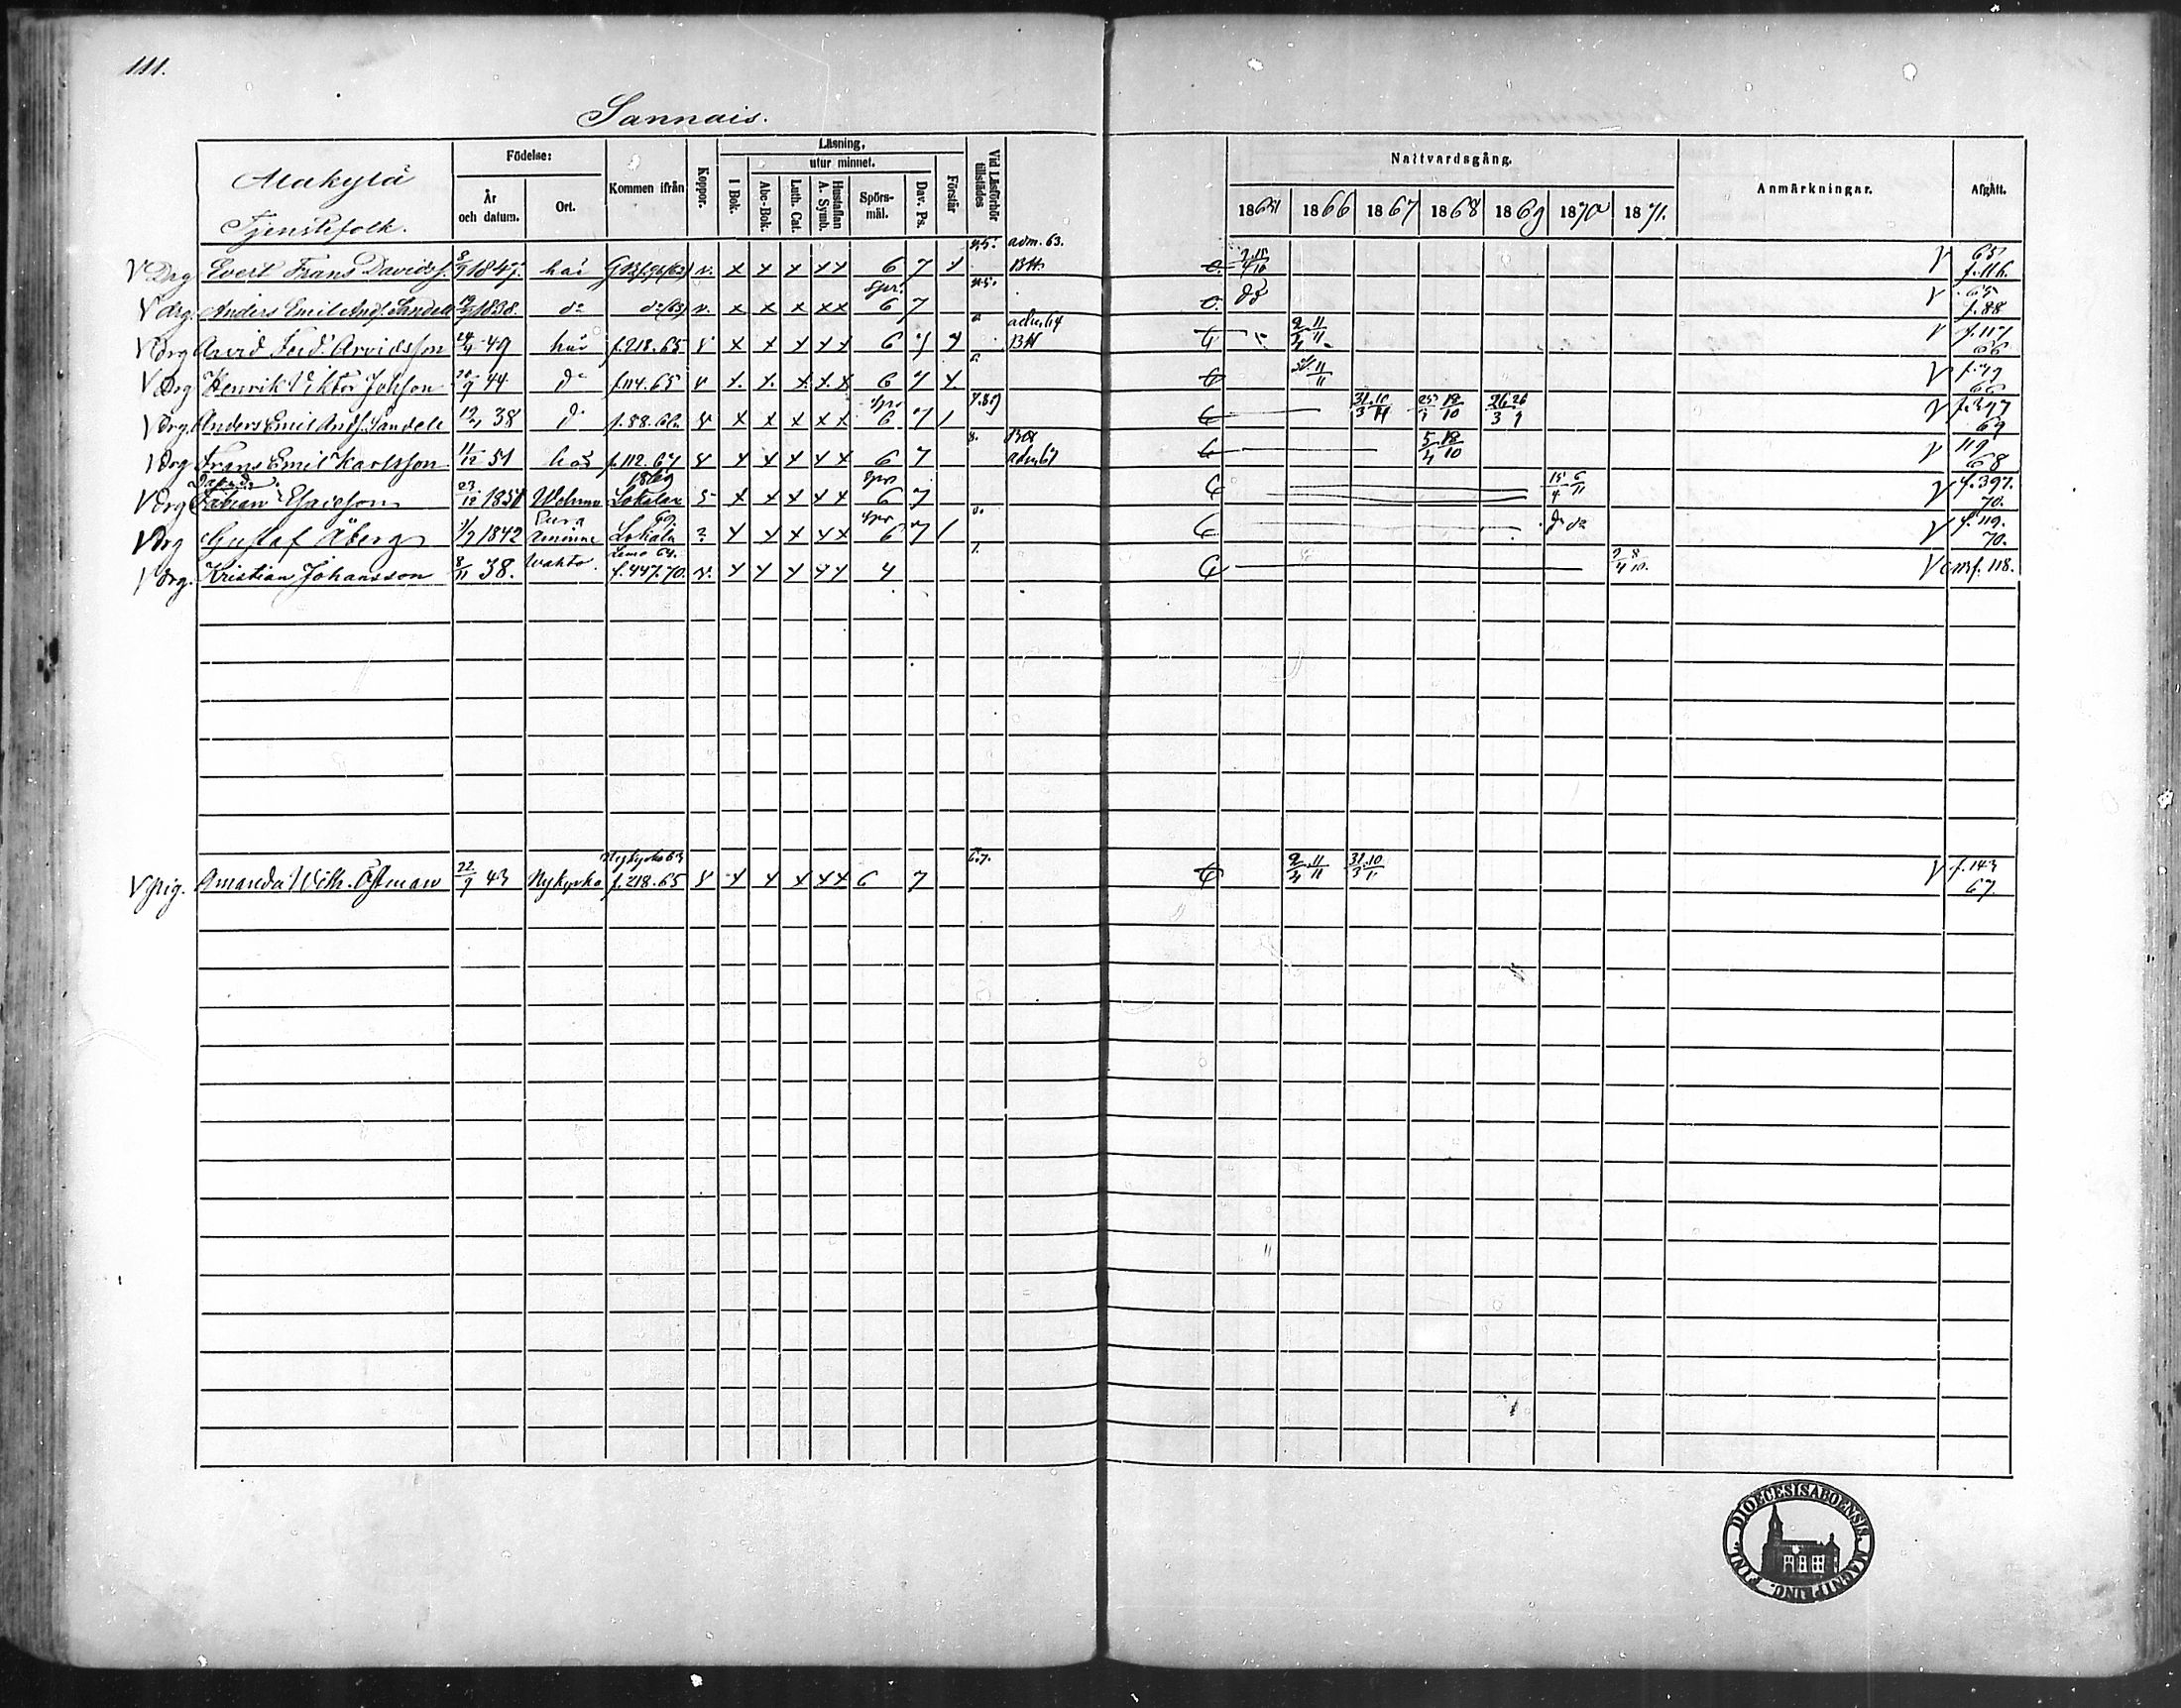 111.
Sannais.
Alakylä
Tjenstefolk.
Födelse:
År och datum.
Ort.
Kommen ifrån
Koppor.
Läsning,
utur minnet.
I Bok.
Abc-Bok.
Luth. Cat.
Hustaflan A. Symb.
Spörs-mål.
Dav. Ps.
Förstår
Vid Läsförhör tillstädes
Nattvardsgång.
1865 1866 1867 1868 1869 1870 1871.
Anmärkningar.
Afgått.
V Drg Evert Frans Davidsf. 8/9 1847. här v. x x x x x 6 7 x adm. 63. V 65 f. 116.
V drg. Anders Emil Andf. Sandell 1838. do do (63) v. x x x x x spr. 6 7 do V 65 f. 88
V drg Arvid Ferd. Arvidsson 49 här f. 218. 65 x x x x x 6 7 adm 64 2/4 11/11 V f. 117 66
V drg Henrik Viktor Johsson 20/9 44 do f. 114. 65 v x x x x x 6 7 x 11/11 V 66
V drg. Anders Emil Andf. Sandell 38 do f. 88. 66 x x x x x spr 6 7 7.8.9 31/3 10/11 18/10 V f. 397 69
V drg Frans Emil Karlsson 11/12 51 här f. 112. 67 x x x x x 6 7 8. adm 67 5/4 18/10 V 119 68
V drg Fabian Esaiesson 23/12 1851 Wehmo Lokalax 1869 x x x x x spr 6 7 15/4 6/11 V f. 397. 70.
V drg Gustaf Åberg 1842 Eura Lokala 69. x x x x x spr 6 7 do do V f. 119. 70.
V drg. Kristian Johansson 8/11 38. Wahto. Lemo 64. f. 447. 70. v. x x x x x 4 1. 2/4 8/10. V f. 118.
V pig. Amanda Wilh. Östman 22/9 43 Nykyrko Nykyrko 63 f. 218. 65 x x x x x 6 7 6.7. 2/4 11/11 31/3 10/11 V f. 143 67.
DIOECESIS ABOENSIS. MAGNI PRINC. FINL.